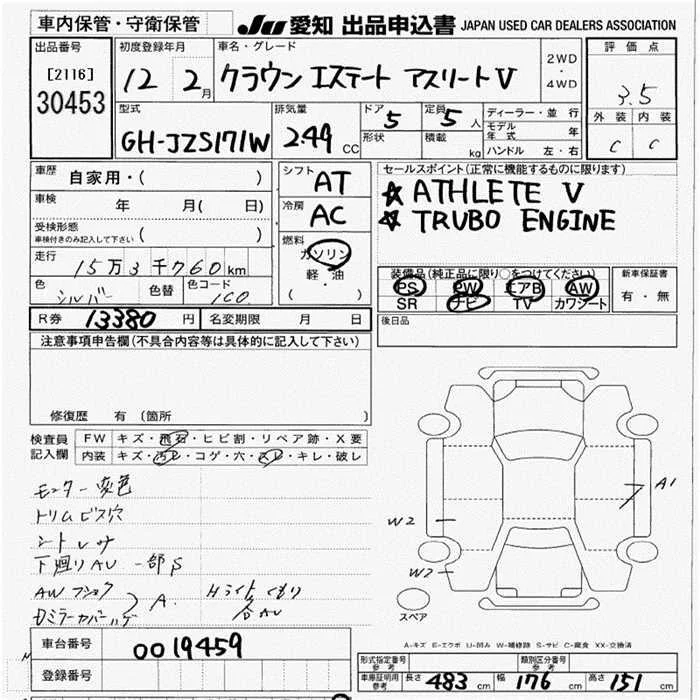 車内保管・守衛保管 JU 愛知 出品申込書 JAPAN USED CAR DEALERS ASSOCIATION
出品番号 初度登録年月 車名・グレード 評価点
[2116] 12 2月 クラウン エステート アスリートV 2WD・4WD
30453 3.5
型式 排気量 ドア 5 定員 5人 ディーラー・並 行 外装 内装
GH-JZS171W 2.49 CC 形状 積載 kg モデル年式 年 C C
ハンドル 左・右
車歴 自家用・( ) シフト AT セールスポイント(正常に機能するものに限ります)
車検 年 月( 日) 冷房 AC ☆ ATHLETE V
受検形態 ( ) ☆ TRUBO ENGINE
車検付きのみ記入して下さい
燃料 ガソリン
走行 15万3千760km 軽・油 装備品(純正品に限り○をつけてください) 新車保証書
色 シルバー 色替 色コード 1C0 ( ・ ) PS PW エアB AW 有・無
SR ナビ TV カワシート
R券 13380 円 名変期限 月 日 後日品
注意事項申告欄(不具合内容等は具体的に記入して下さい)
修復歴 有(箇所 )
検査員 FW キズ・飛石・ヒビ割・リペア跡・X要
記入欄 内装 キズ・汚レ・コゲ・穴・スレ・キレ・破レ
モニター変色 A1
トリムビス穴 W2
シートレサ
下廻りAU 一部S W2
AW A. Hライトくもり
スペア
A-キズ E-エクボ U-凹み W-補修跡 S-サビ C-腐食 XX-交換済
車台番号 0019459
登録番号 形式指定番号 参考 類別区分番号 参考
車庫証明用 参考 長さ 483cm 幅 176cm 高さ 151cm